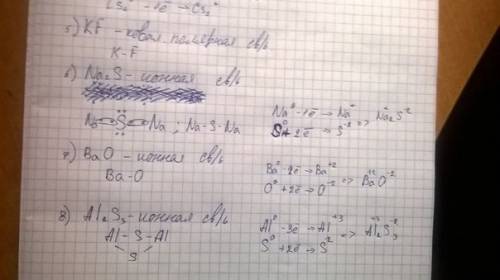 Cs₂⁰ -1ē → Cs₂⁺
5) KF – ковал полярная св/ь
K-F
6) Na₂S – ионная св/ь
Na S Na ; Na-S-Na
Na⁰ -1ē → Na⁺
S⁰ +2ē → S⁻² => Na₂⁺S⁻²
7) BaO – ионная св/ь
Ba-O
Ba⁰ -2ē → Ba⁺²
O⁰ +2ē → O⁻² => Ba⁺²O⁻²
8) Al₂S₃ – ионная св/ь
Al - S - Al
S
Al⁰ -3ē → Al⁺³
S⁰ +2ē → S⁻² => Al₂⁺³S₃⁻²